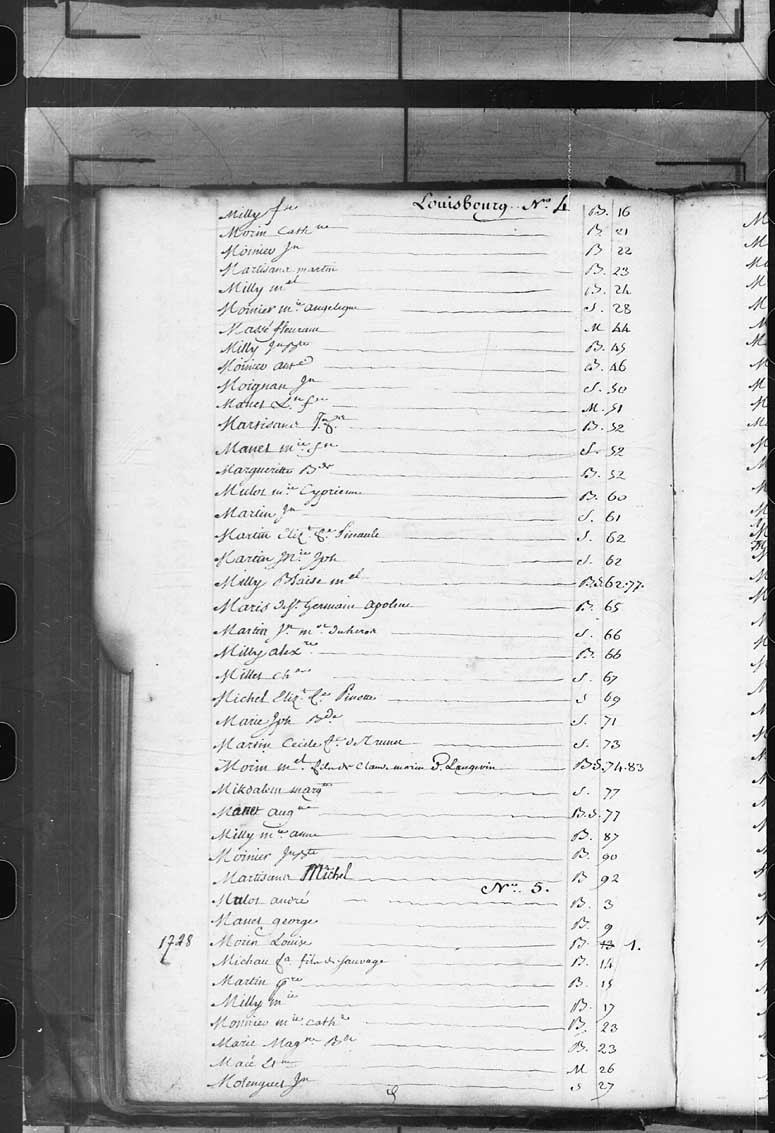 Louisbourg N.º 4
Milly f.se B. 16
Morin Cath.ne B. 21
Moinier J.n B 22
Martisans martin B. 23
Milly m.el B. 24
Moinier m.ie angelique S. 28
Massé fleuram M 44
Milly J.n B. 45
Moinier ant.e B. 46
Moignan J.n S. 50
Manet L.s f.n M. 51
Martisans B. 52
Manet m.ie f.n S. 52
Margueritte B.de B. 52
Mulot m.ie Cyprienne B. 60
Martin J.n S. 61
Martin Eliz. f.e Pinault S. 62
Martin M.ie Jph S. 62
Milly Blaise m.el B S. 62. 77.
Maris de S.t Germain apoline B. 65
Martin J.n m.e duheron S. 66
Milly alex.re B. 66
Milles ch.es S. 67
Michel Eliz. f.e Pinotte S 69
Marie Jph B.de S. 71
Martin Cecile f.e S. 73
Morin m.el fils de Claude morin d. Langevin B S. 74. 83
Mikdalem marg.te S. 77
Manet aug.ne B. S. 77
Milly m.ie anne B. 87
Moinier B. 90
Martisans Michel B 92
N.º 5.
Mulot andré B. 3
Manet george B. 9
1728 Morin Louise B. 13 1.
Michau f.a fils de sauvage B. 14
Martin g.re B. 15
Milly m.ie B. 17
Moinier m.ie Cath.e B. 23
Marie Mag.ne B.de B. 23
Macé M 26
Molenguet J.n S 27